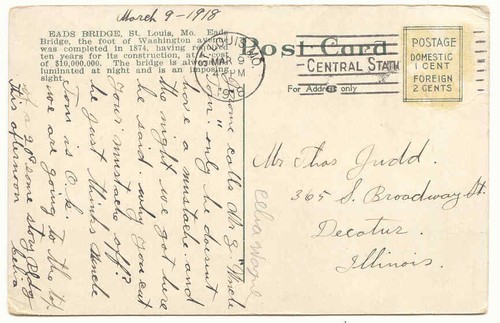 March 9-1918
EADS BRIDGE, St. Louis, Mo. Eads
Bridge, the foot of Washington avenue
was completed in 1874, having required
ten years for its construction, at a cost
of $10,000,000. The bridge is always il-
luminated at night and is an imposing
sight.
Post Card
For Address only
ST. LOUIS, MO.
MAR 9
PM
1918
CENTRAL STATION
POSTAGE
DOMESTIC
1 CENT
FOREIGN
2 CENTS
calls Mr G. "Uncle
Tom" only he doesn't
have a mustache. and
the night we got here
he said. why you cut
your mustache off?
he just thinks Uncle
Tom is O.K.
we are going to the top
of a 20 some story Bldg
this afternoon
Celia
Mr Thos Judd.
365 S. Broadway St.
Decatur.
Illinois.
Celia